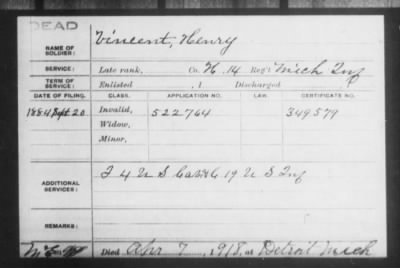 DEAD
NAME OF SOLDIER: Vincent, Henry
SERVICE: Late rank, Co. H, 14 Reg't Mich Inf
TERM OF SERVICE: Enlisted , 1 Discharged
DATE OF FILING. CLASS. APPLICATION NO. LAW. CERTIFICATE NO.
1884 Sept 20 Invalid, 522764 349579
Widow,
Minor,
ADDITIONAL SERVICES: F 4 U S Cav & G 19 U S Inf
REMARKS:
Died Apr 7, 1918, at Detroit Mich